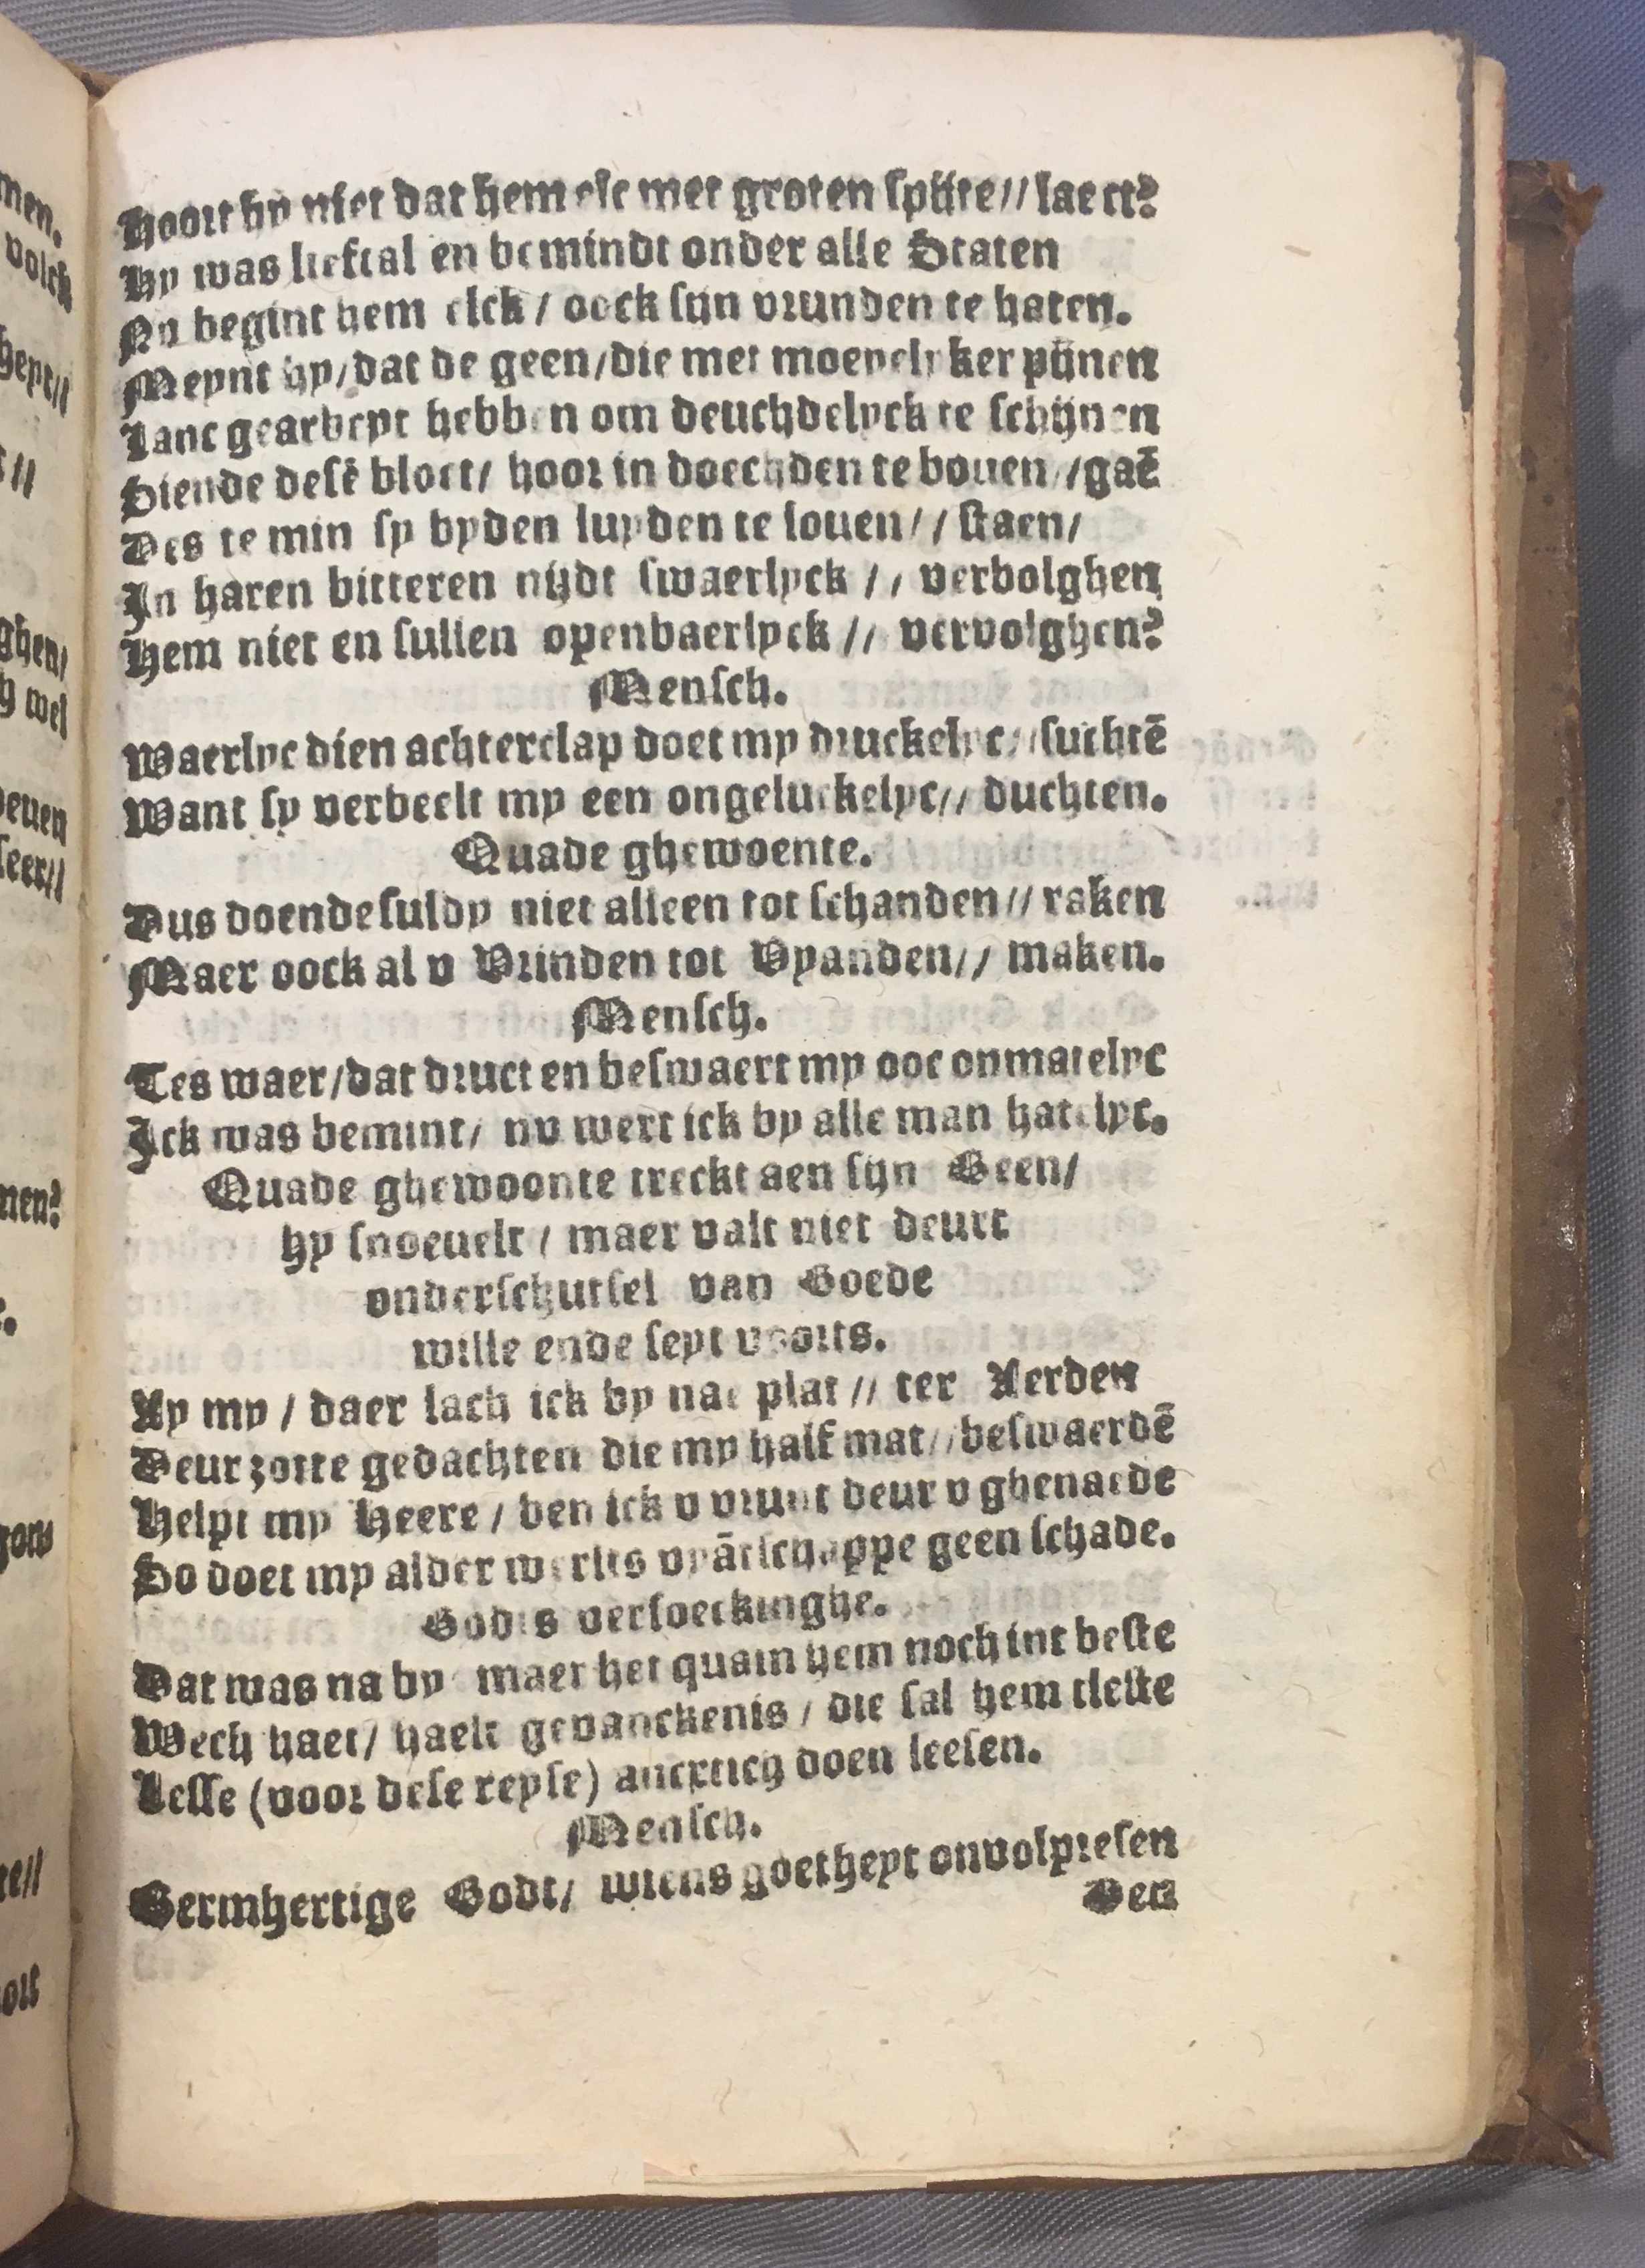 Hoort hy niet dat hem elc met groten spijte// laect?
Hy was lieftal en bemindt onder alle Staten
Nu begint hem elck / oock sijn vrunden te haten.
Meynt hy/dat de geen/die met moeyelyker pijnen
Lanc gearbeyt hebben om deuchdelyck te schijnen
Siende desē bloet/ hoor in doechden te bouen//gaē
Des te min sy byden luyden te louen// staen/
In haren bitteren nijdt swaerlyck // verbolghen
Hem niet en sullen openbaerlyck // vervolghen?
Mensch.
Waerlyc dien achterclap doet my druckelyc//suchtē
Want sy verbeelt my een ongeluckelyc// duchten.
Quade ghewoente.
Dus doende suldy niet alleen tot schanden// raken
Maer oock al v Vrinden tot Vyanden// maken.
Mensch.
Tes waer/dat druct en beswaert my ooc onmatelyc
Ick was bemint/ nv wert ick by alle man hatelyc.
Quade ghewoonte treckt aen sijn Seen/
hy snoeuelt / maer valt niet deurt
onderschutsel van Goede
wille ende seyt voorts.
Ay my / daer lach ick by nae plat // ter Aerden
Deur zotte gedachten die my half mat//beswaerdē
Helpt my Heere / ben ick v vrunt deur v ghenaede
So doet my alder werlts vyātschappe geen schade.
Godes versoeckinghe.
Dat was na by maer het quam hem noch int beste
Wech haet/ haelt gevanckenis / die sal hem tleste
Lesse (voor dese reyse) auerticg doen leesen.
Mensch.
Bermhertige Godt/ wiens goetheyt onvolpresen
Den